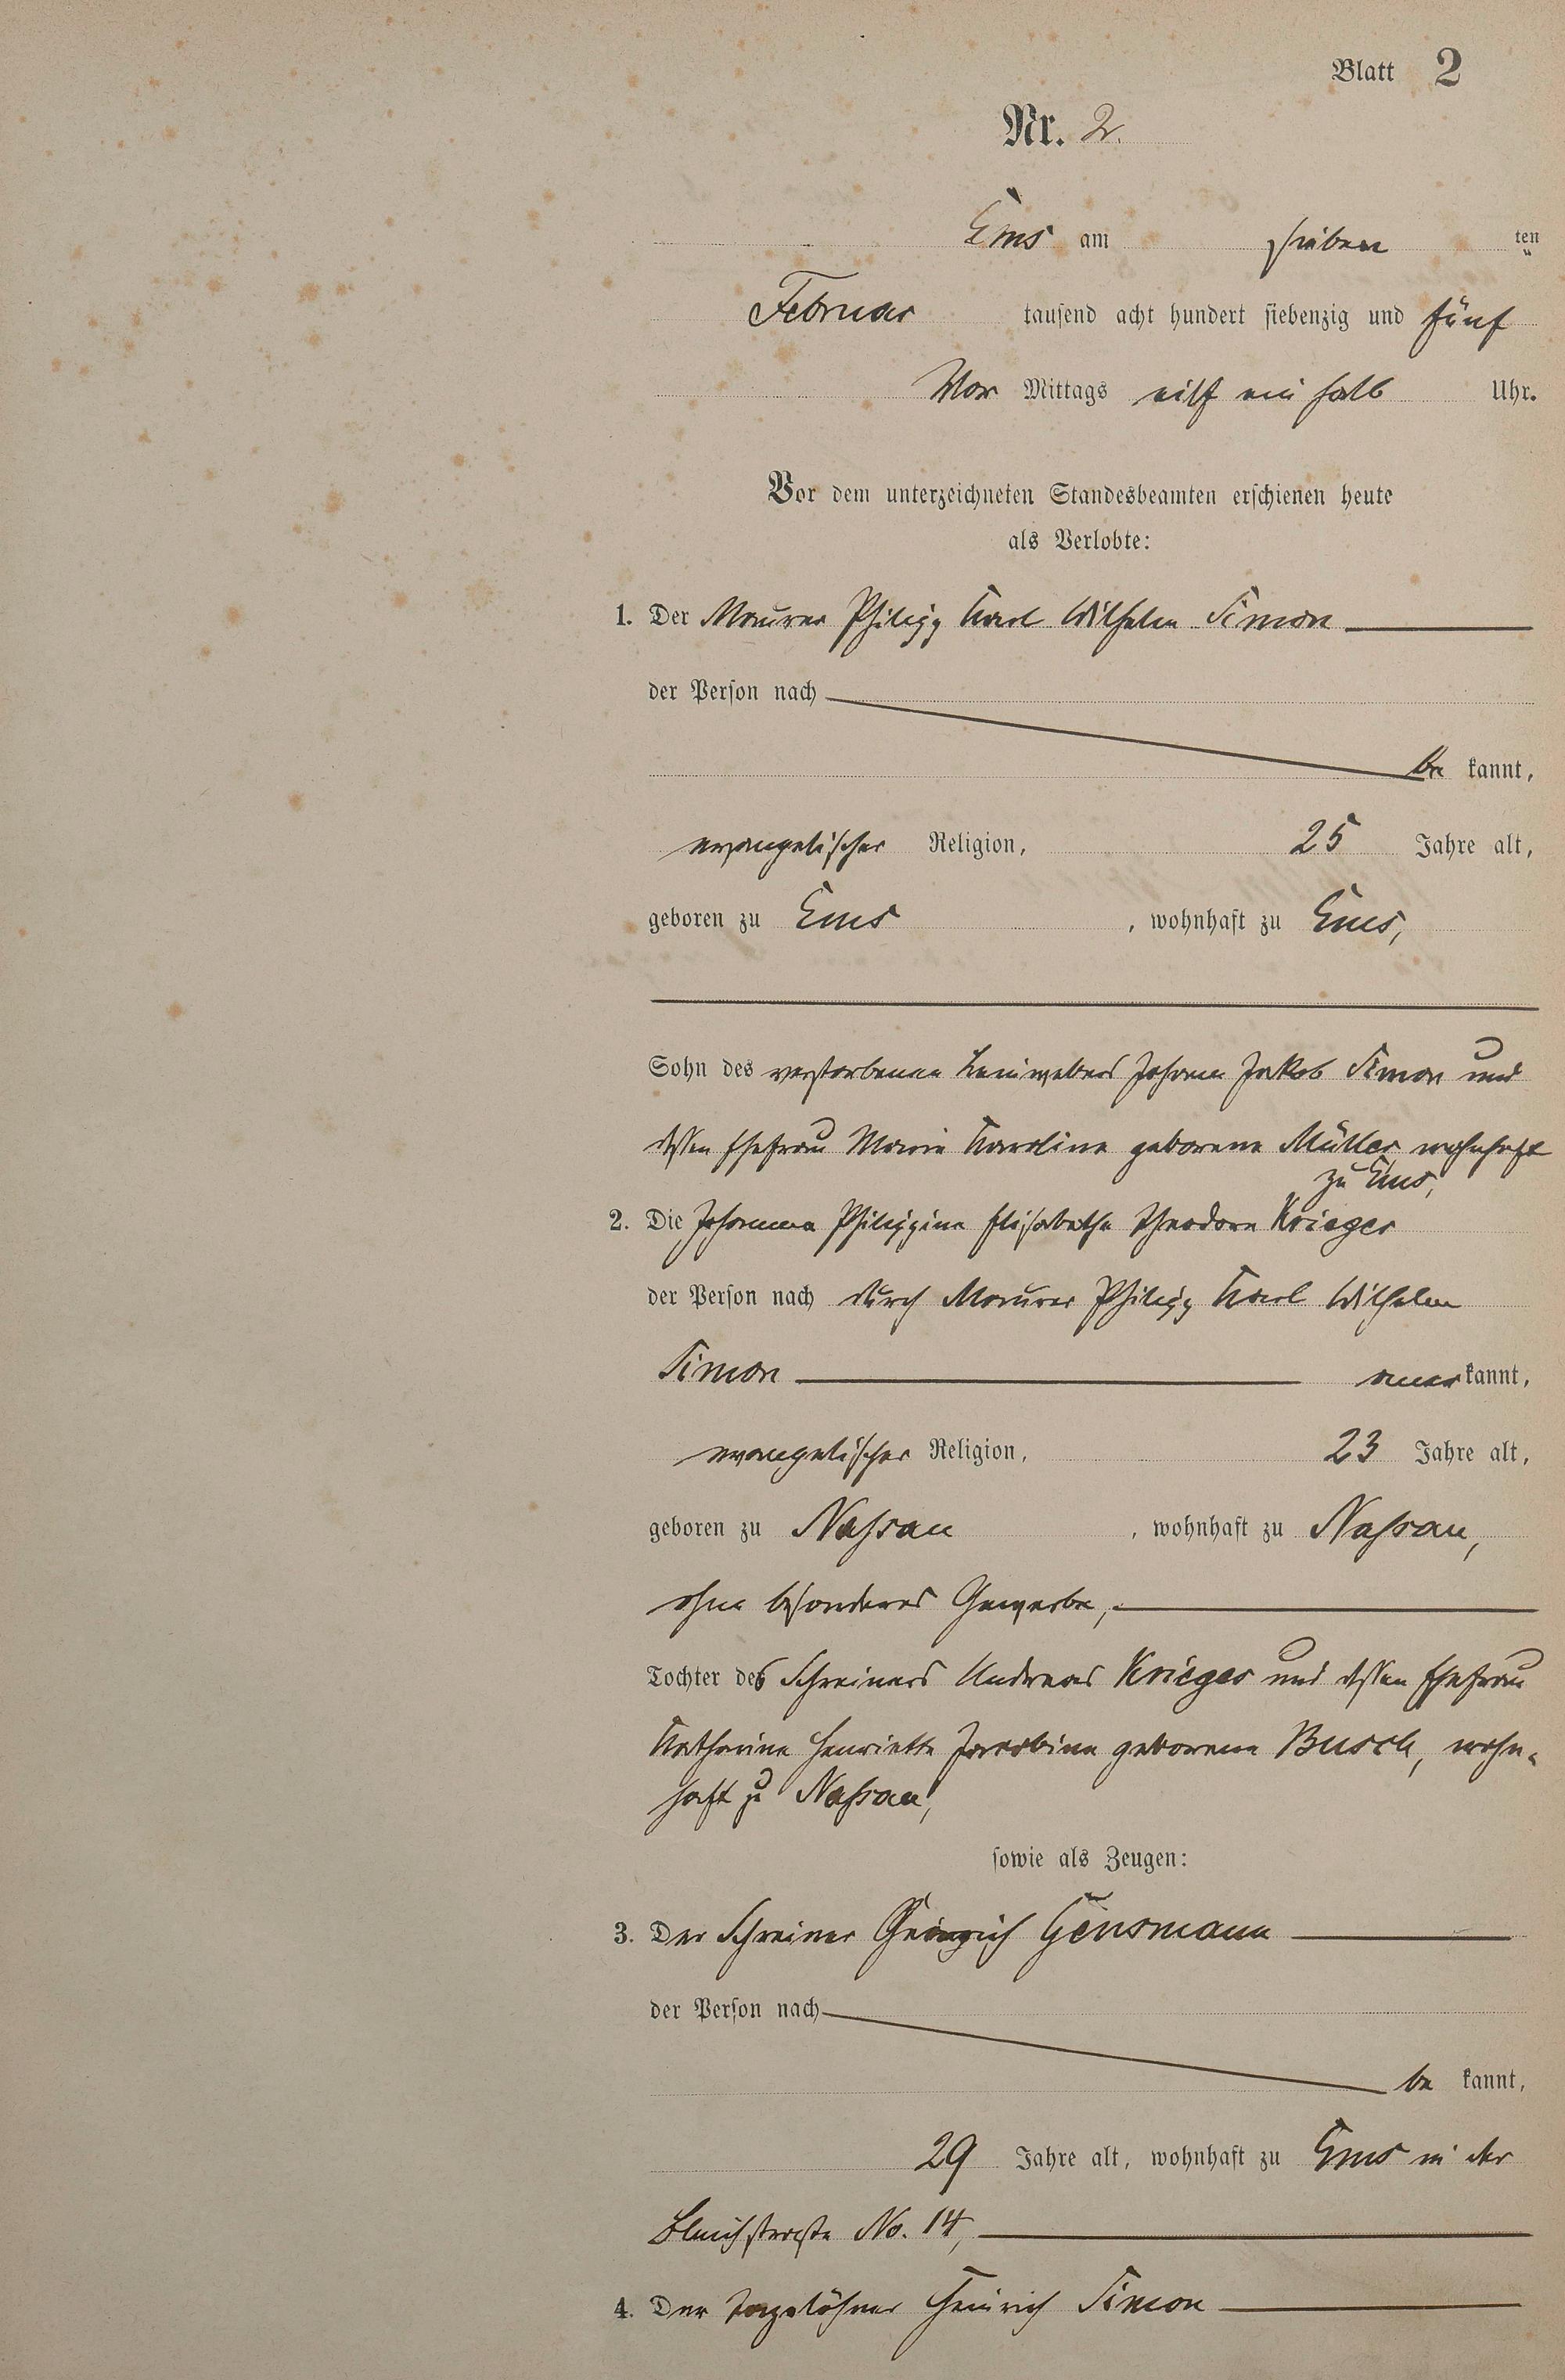 Blatt 2
Nr. 2.
Ems am sieben ten
Februar tausend acht hundert siebenzig und fünf
Vor Mittags eilf ein halb Uhr.
Vor dem unterzeichneten Standesbeamten erschienen heute
als Verlobte:
1. Der Maurer Philipp Karl Wilhelm Simon
der Person nach
be kannt,
evangelischer Religion, 25 Jahre alt,
geboren zu Ems, wohnhaft zu Ems,
Sohn des verstorbenen Leinwebers Johann Jakob Simon und
dessen Ehefrau Marie Karoline geborene Müller wohnhaft
zu Ems,
2. Die Johanna Philippine Elisabethe Theodore Krieger
der Person nach durch Maurer Philipp Karl Wilhelm
Simon aner kannt,
evangelischer Religion, 23 Jahre alt,
geboren zu Nassau, wohnhaft zu Nassau,
ohne besonderes Gewerbe,
Tochter des Schreiners Andreas Krieger und dessen Ehefrau
Katharine Henriette Jacobine geborene Busch, wohn-
haft zu Nassau,
sowie als Zeugen:
3. Der Schreiner Heinrich Gensmann
der Person nach
be kannt,
29 Jahre alt, wohnhaft zu Ems in der
Bleichstraße No. 14,
4. Der Tagelöhner Heinrich Simon